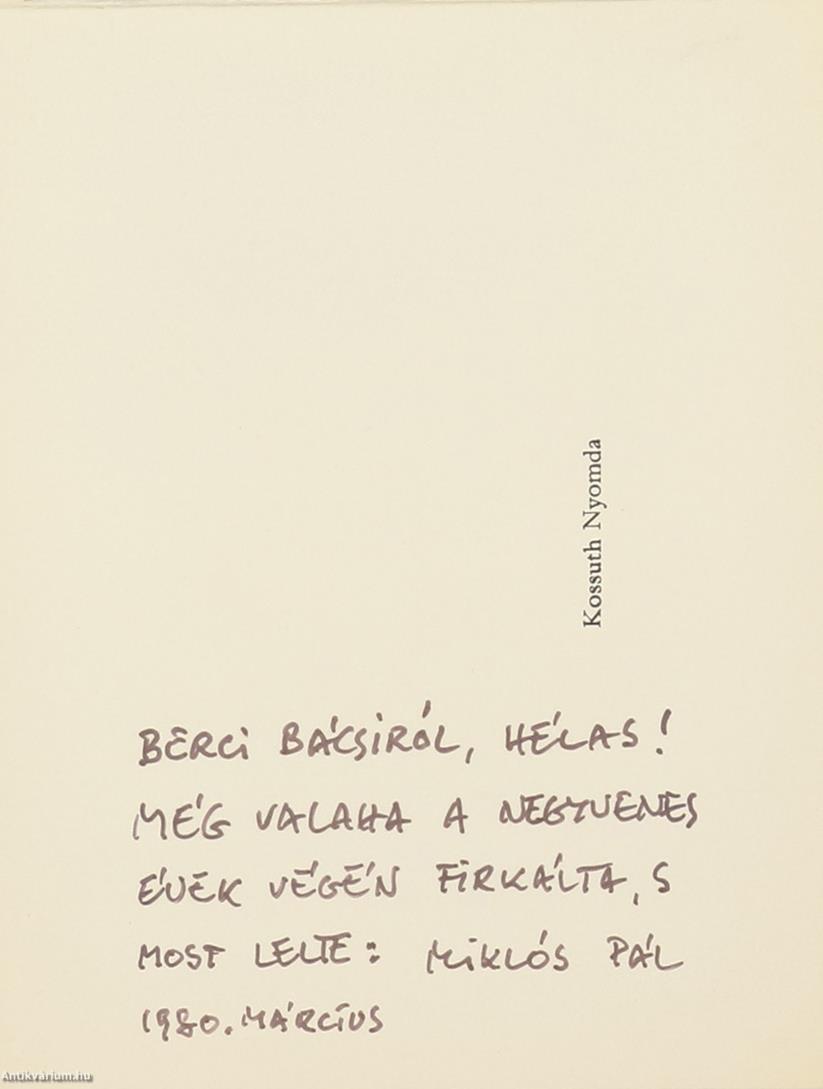 Kossuth Nyomda
BERCI BÁCSIRÓL, HÉLAS!
MÉG VALAHA A NEGYVENES
ÉVEK VÉGÉN FIRKÁLTA, S
MOST LELTE: MIKLÓS PÁL
1980. MÁRCIUS
Antikvárium.hu